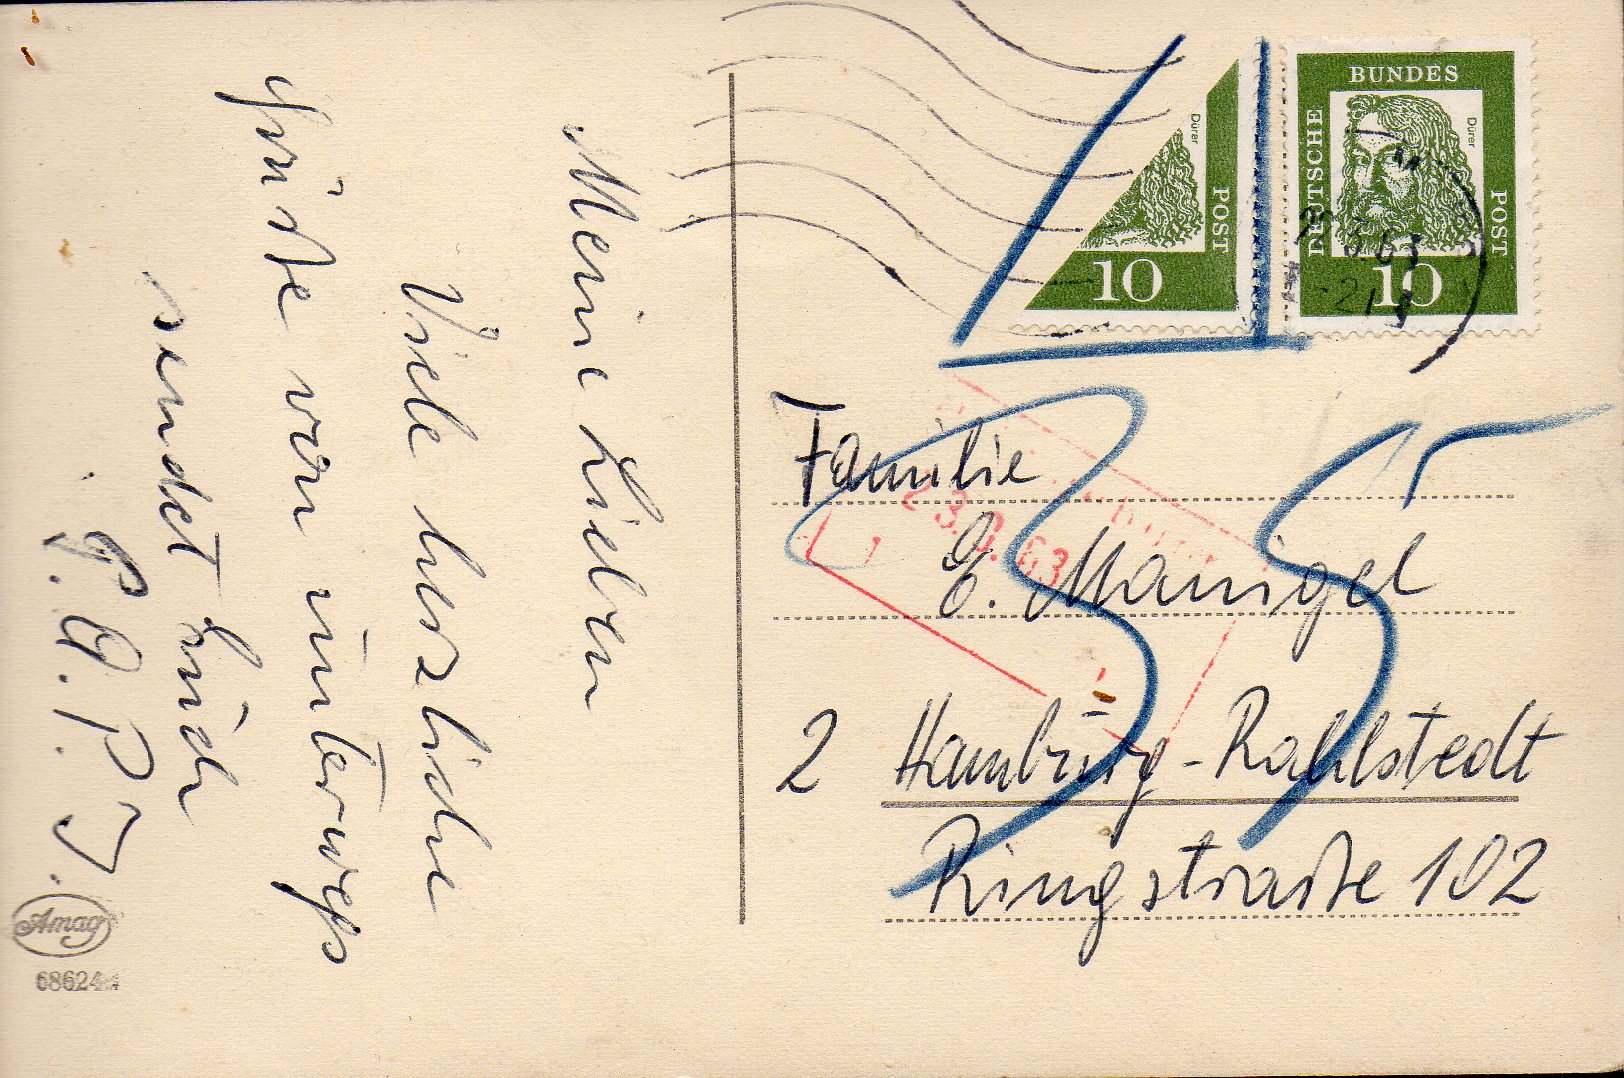 Meine Lieben
Viele herzliche
Grüße von unterwegs
sendet Euch
Amag
68624
Dürer
POST
10
DEUTSCHE
BUNDES
POST
Dürer
10
.63
-21
35
23. .63
Familie
E. Manigel
2 Hamburg-Rahlstedt
Ringstraße 102